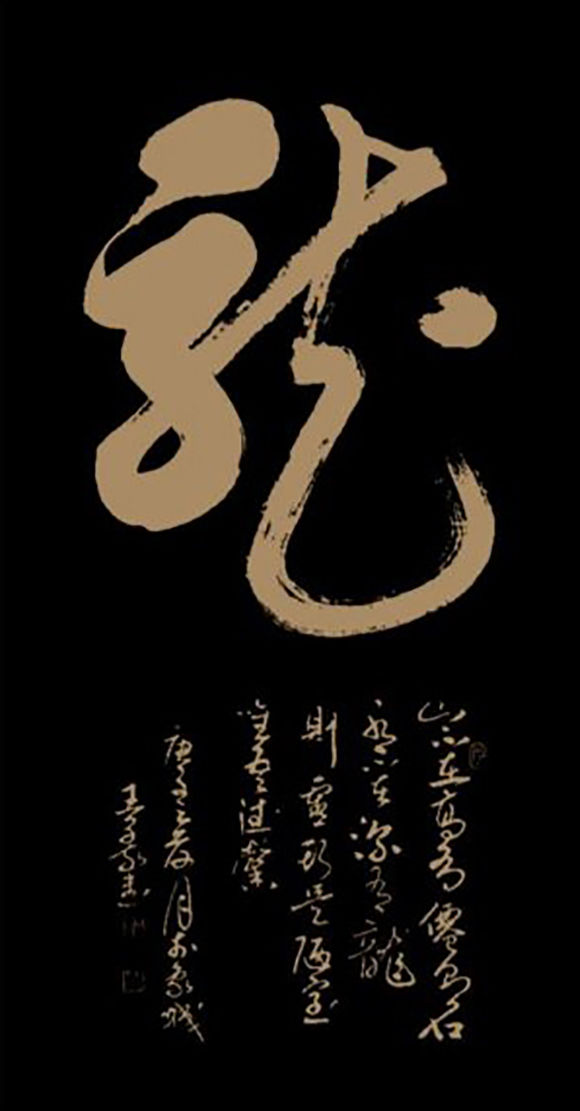 龍
山不在高有僊則名
水不在深有龍
則靈斯是陋室
惟吾德馨
庚 月 象城